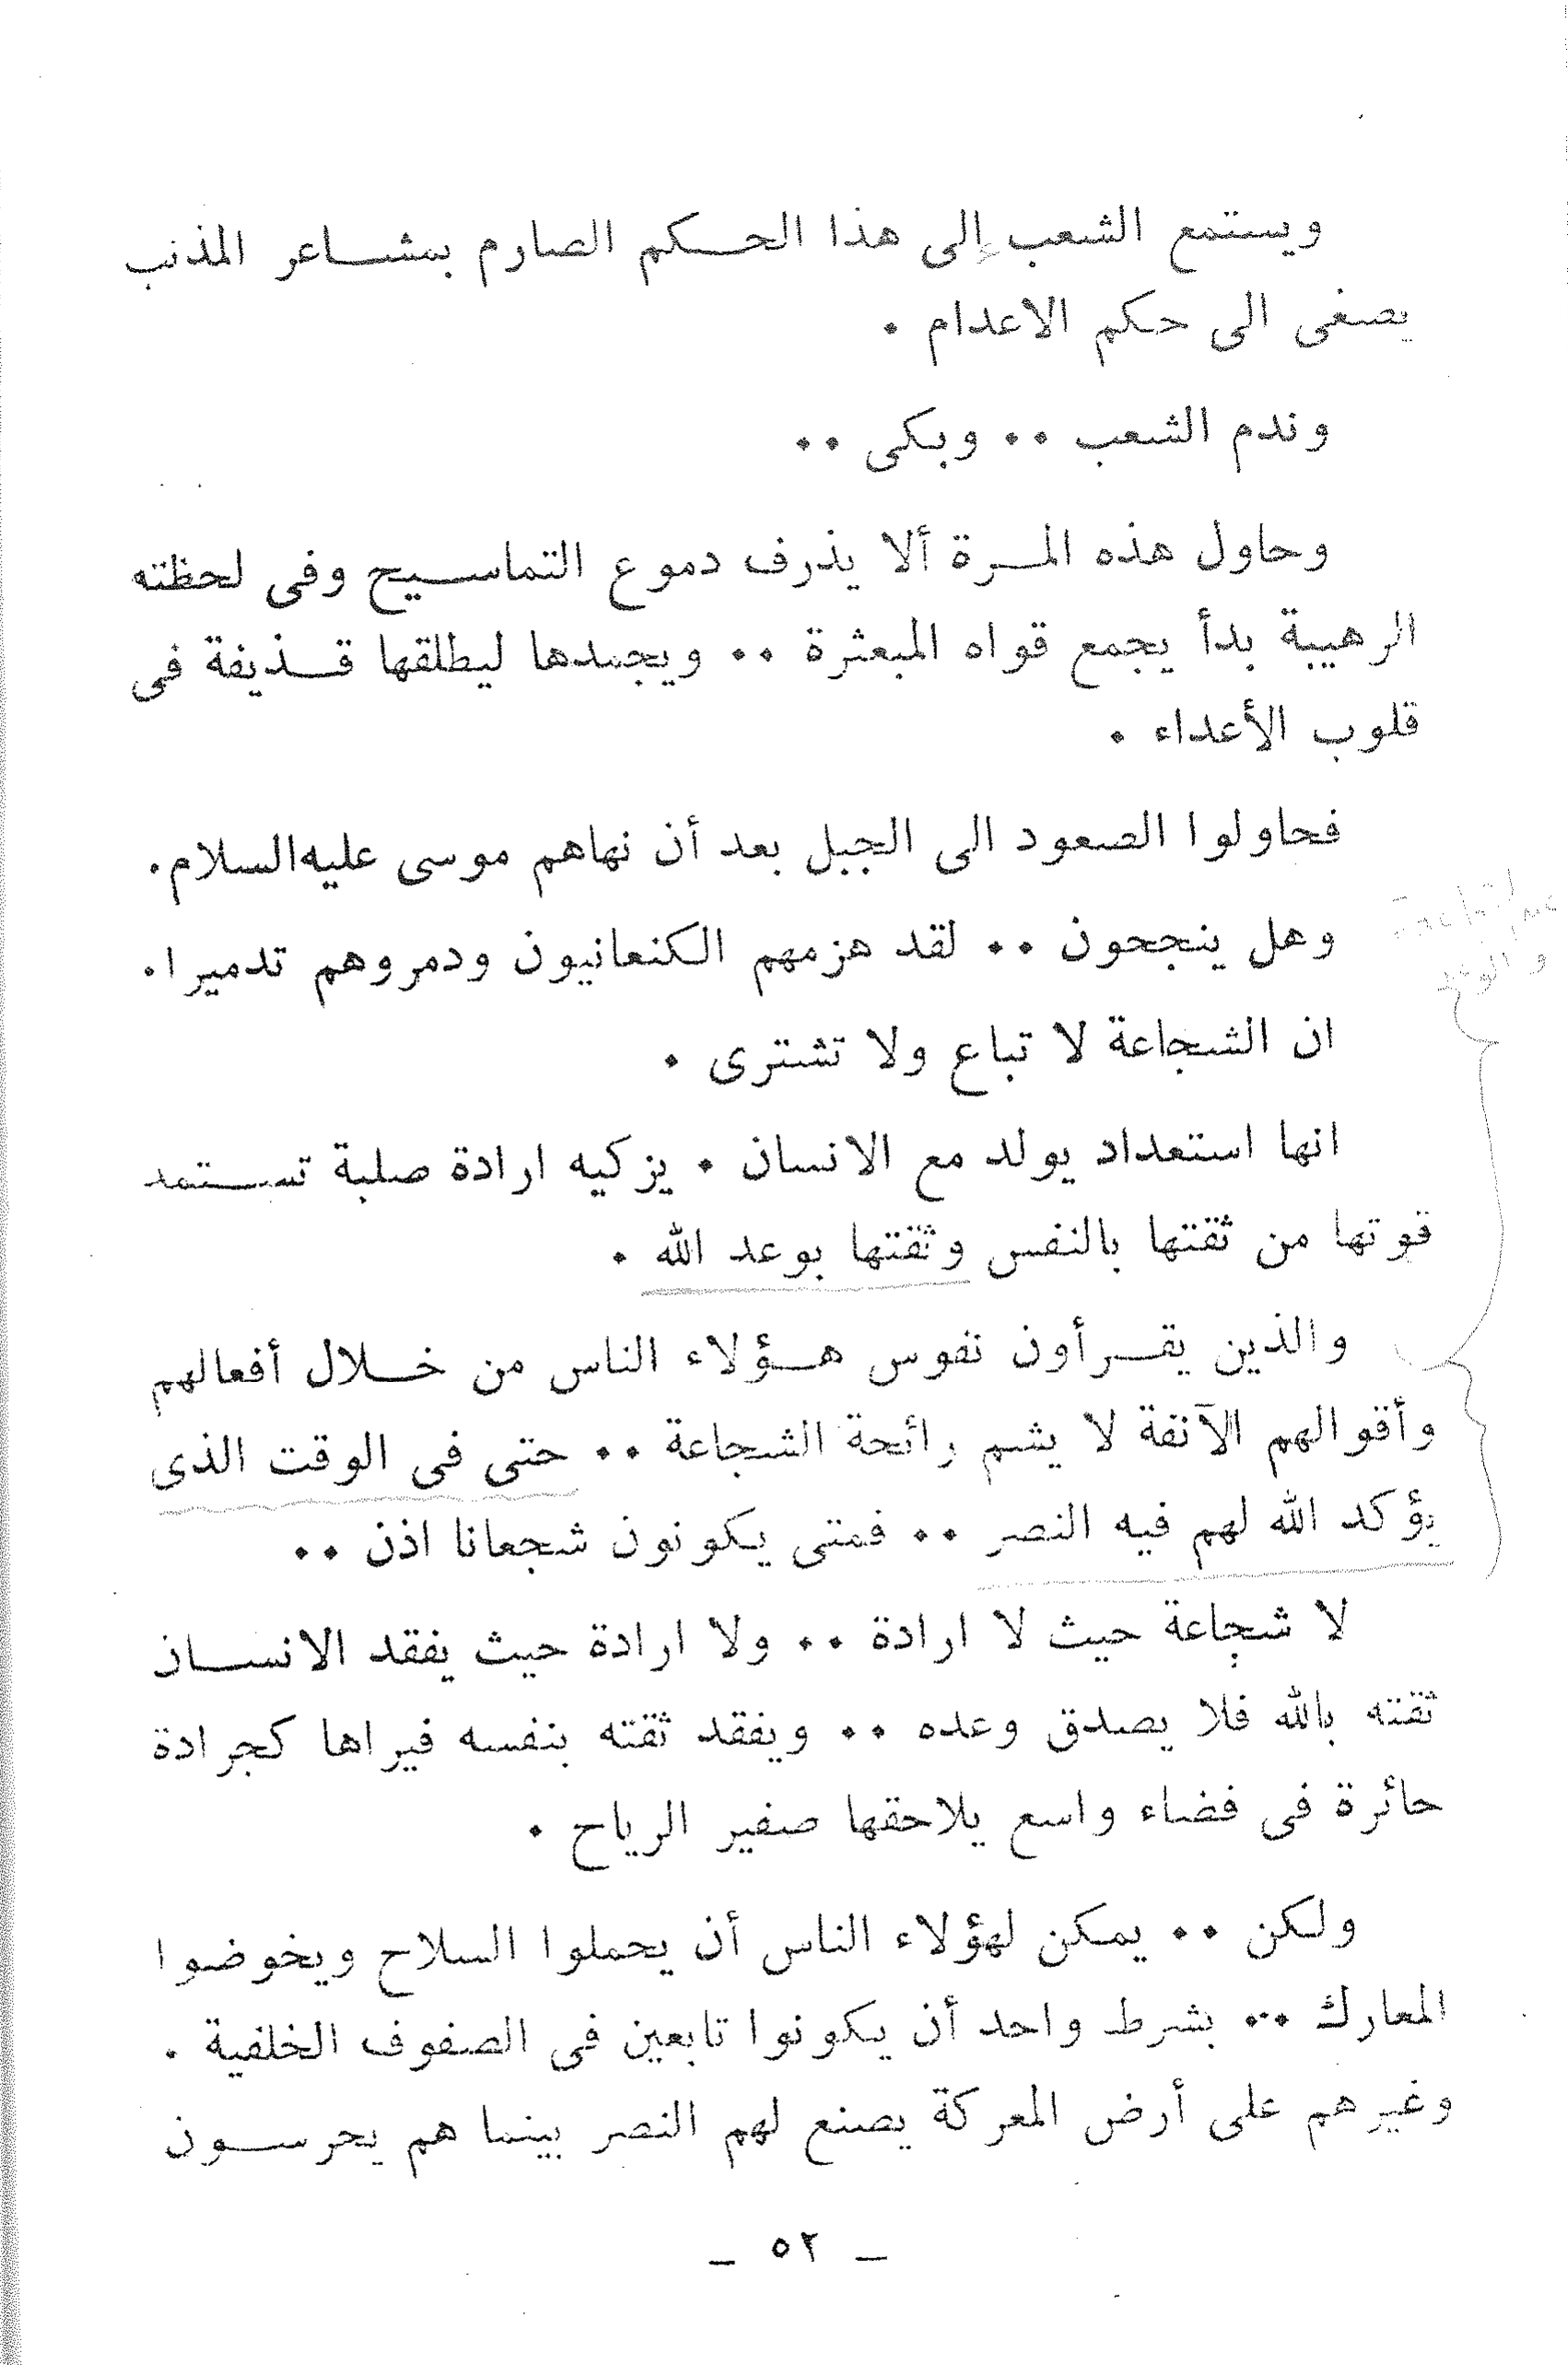 ويستمع الشعب إلى هذا الحكم الصارم بمشاعر المذنب
يصغى الى حكم الاعدام .
وندم الشعب .. وبكى ..
وحاول هذه المرة ألا يذرف دموع التماسيح وفى لحظته
الرهيبة بدأ يجمع قواه المبعثرة .. ويجمدها ليطلقها قذيفة فى
قلوب الأعداء .
فحاولوا الصعود الى الجبل بعد أن نهاهم موسى عليه السلام.
وهل ينجحون .. لقد هزمهم الكنعانيون ودمروهم تدميرا.
ان الشجاعة لا تباع ولا تشترى .
انها استعداد يولد مع الانسان . يزكيه ارادة صلبة تستمد
قوتها من ثقتها بالنفس وثقتها بوعد الله .
والذين يقرأون نفوس هؤلاء الناس من خلال أفعالهم
وأقوالهم الآنفة لا يشم رائحة الشجاعة .. حتى فى الوقت الذى
يؤكد الله لهم فيه النصر .. فمتى يكونون شجعانا اذن ..
لا شجاعة حيث لا ارادة .. ولا ارادة حيث يفقد الانسان
ثقته بالله فلا يصدق وعده .. ويفقد ثقته بنفسه فيراها كجرادة
حائرة فى فضاء واسع يلاحقها صفير الرياح .
ولكن .. يمكن لهؤلاء الناس أن يحملوا السلاح ويخوضوا
المعارك ... بشرط واحد أن يكونوا تابعين فى الصفوف الخلفية .
وغيرهم على أرض المعركة يصنع لهم النصر بينما هم يحرسون
– ٥٢ –